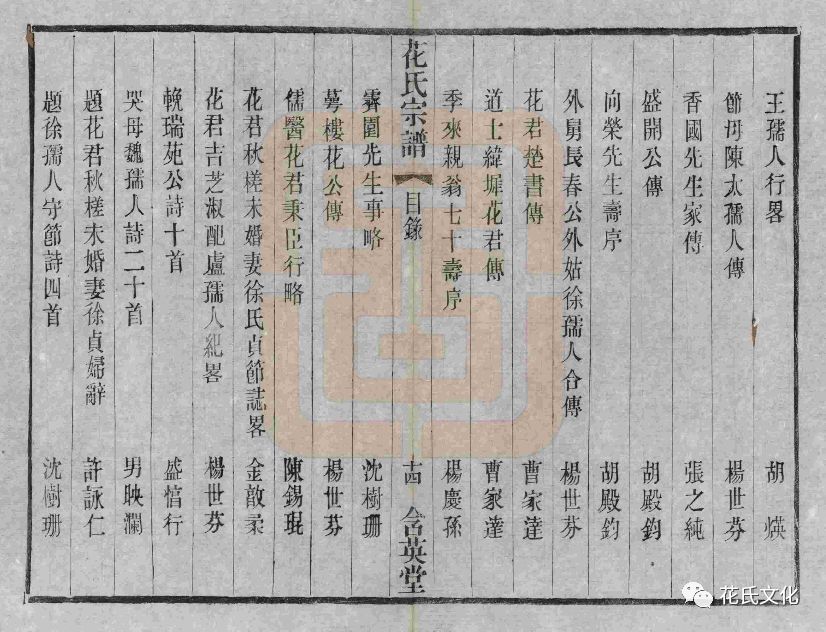 王孺人行畧 胡煐
節母陳太孺人傳 楊世芬
香國先生家傳 張之純
盛開公傳 胡殿鈞
向榮先生壽序 胡殿鈞
外舅長春公外姑徐孺人合傳 楊世芬
花君楚書傳 曹家達
道士緯墀花君傳 曹家達
季來親翁七十壽序 楊慶孫
花氏宗譜 目錄 十四 含英堂
霽園先生事略 沈樹珊
萼樓花公傳 楊世芬
儒醫花君秉臣行略 陳錫琨
花君秋槎未婚妻徐氏貞節誌畧 金敵柔
花君吉芝淑配盧孺人紀畧 楊世芬
輓瑞苑公詩十首 盛愔行
哭母魏孺人詩二十首 男映瀾
題花君秋槎未婚妻徐貞婦辭 許詠仁
題徐孺人守節詩四首 沈樹珊
花氏文化